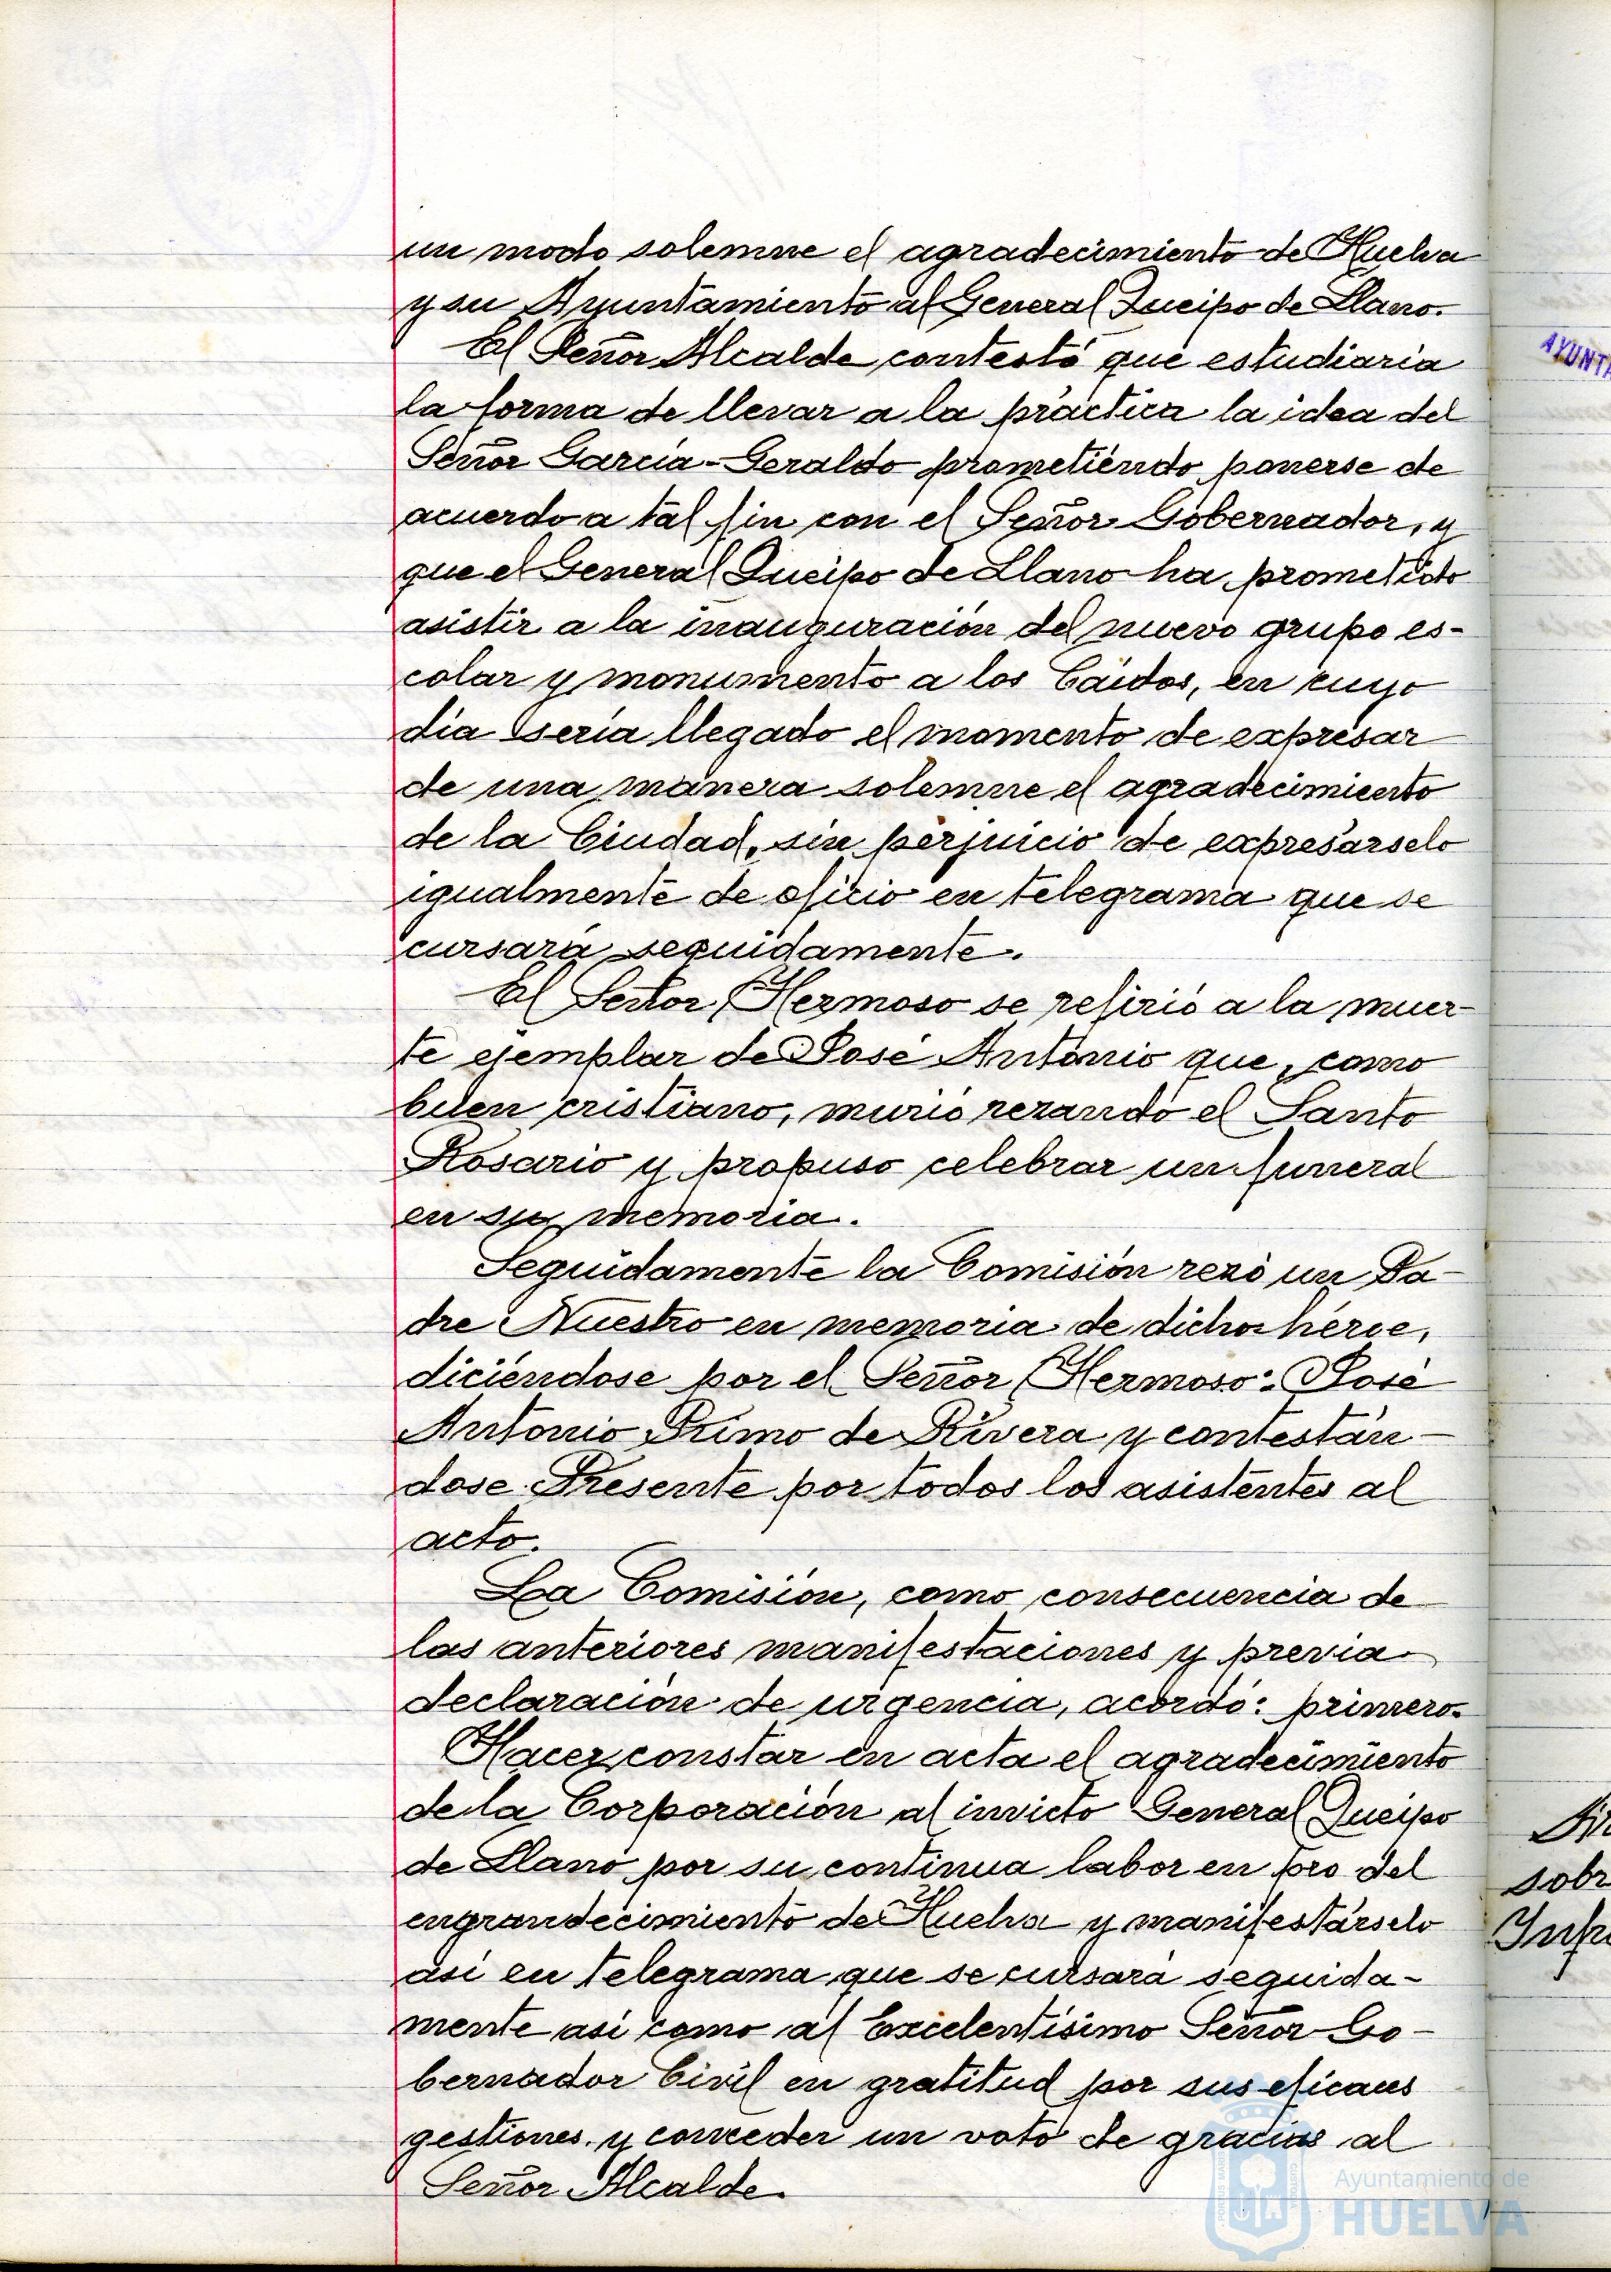 un modo solemne el agradecimiento de Huelva
y su Ayuntamiento al General Queipo de Llano.
El Señor Alcalde contestó que estudiaria
la forma de llevar a la práctica la idea del
Señor García-Geraldo prometiéndo ponerse de
acuerdo a tal fin con el Señor Gobernador, y
que el General Queipo de Llano ha prometido
asistir a la inauguración del nuevo grupo es-
colar y monumento a los Caídos, en cuyo
día sería llegado el momento de expresar
de una manera solemne el agradecimiento
de la Ciudad, sin perjuicio de expresárselo
igualmente de oficio en telegrama que se
cursará seguidamente.
El Señor Hermoso se refirió a la muer-
te ejemplar de José Antonio que, como
buen cristiano, murió rezando el Santo
Rosario y propuso celebrar un funeral
en su memoria.
Seguidamente la Comisión rezó un Pa-
dre Nuestro en memoria de dicho héroe,
diciéndose por el Señor Hermoso: José
Antonio Primo de Rivera y contestán-
dose Presente por todos los asistentes al
acto.
La Comisión, como consecuencia de
las anteriores manifestaciones y previa
declaración de urgencia, acordó: primero.
Hacer constar en acta el agradecimiento
de la Corporación al invicto General Queipo
de Llano por su continua labor en pro del
engrandecimiento de Huelva y manifestárselo
así en telegrama que se cursará seguida-
mente así como al Excelentísimo Señor Go-
bernador Civil en gratitud por sus eficaces
gestiones, y conceder un voto de gracias al
Señor Alcalde.
AYUNTA
sobr
Ayuntamiento de
HUELVA